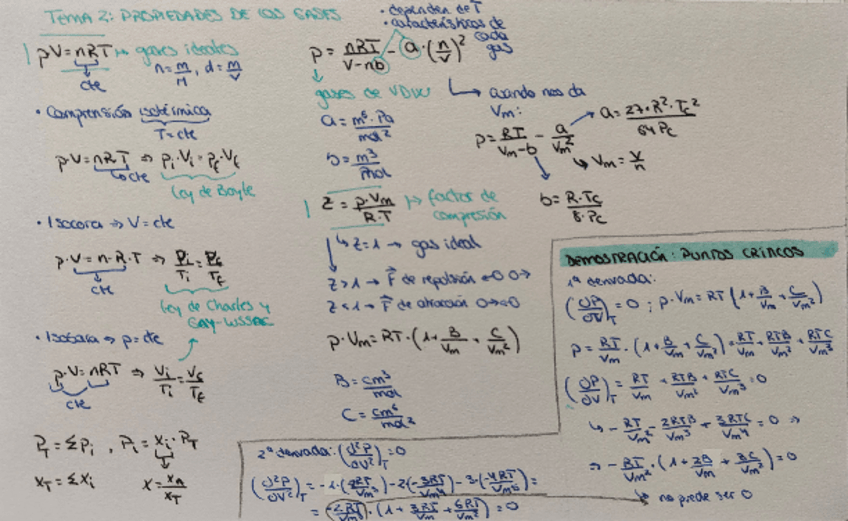 TEMA 2: PROPIEDADES DE LOS GASES
pV = nRT → gases ideales
n = m/M, d = m/V
cte
• Comprensión isotérmica
T = cte
p·V = nRT ⇒ Pi·Vi = Pf·Vf
cte
ley de Boyle
• Isocora ⇒ V = cte
p·V = n·R·T ⇒ Pi/Ti = Pf/Tf
cte
ley de Charles y
GAY-LUSSAC
• Isobara ⇒ p = cte
p·V = nRT ⇒ Vi/Ti = Vf/Tf
cte
PT = Σpi, Pi = xi·PT
xT = Σxi
x = xn/xT
• dependen de T
• características de
cada
gas
p = nRT/V-nb - a·(n/V)²
gases de VDW
a = m⁶·Pa/mol²
b = m³/mol
cuando nos da
Vm:
p = RT/Vm-b - a/Vm²
a = 27·R²·Tc²/64Pc
Vm = V/n
b = R·Tc/8·Pc
Z = p·Vm/R·T → factor de
compresión
Z=1 → gas ideal
Z>1 → F de repulsión
Z<1 → F de atracción
p·Vm = RT·(1 + B/Vm + C/Vm²)
B = cm³/mol
C = cm⁶/mol²
DEMOSTRACIÓN: PUNTOS CRÍTICOS
1ª derivada:
(∂P/∂V)T = 0; p·Vm = RT(1 + B/Vm + C/Vm²)
p = RT/Vm·(1 + B/Vm + C/Vm²) = RT/Vm + RTB/Vm² + RTC/Vm³
(∂P/∂V)T = RT/Vm + RTB/Vm² + RTC/Vm³ = 0
↳ -RT/Vm² - 2RTB/Vm³ + 3RTC/Vm⁴ = 0 ⇒
⇒ -RT/Vm²·(1 + 2B/Vm + 3C/Vm²) = 0
no puede ser 0
2ª derivada: (∂²P/∂V²)T = 0
(∂²P/∂V²)T = -1·(-2RT/Vm³) - 2(-3RT/Vm⁴) - 3·(-4RT/Vm⁵) =
= -2RT/Vm³·(1 + 3RT/Vm + 6RT/Vm²) = 0